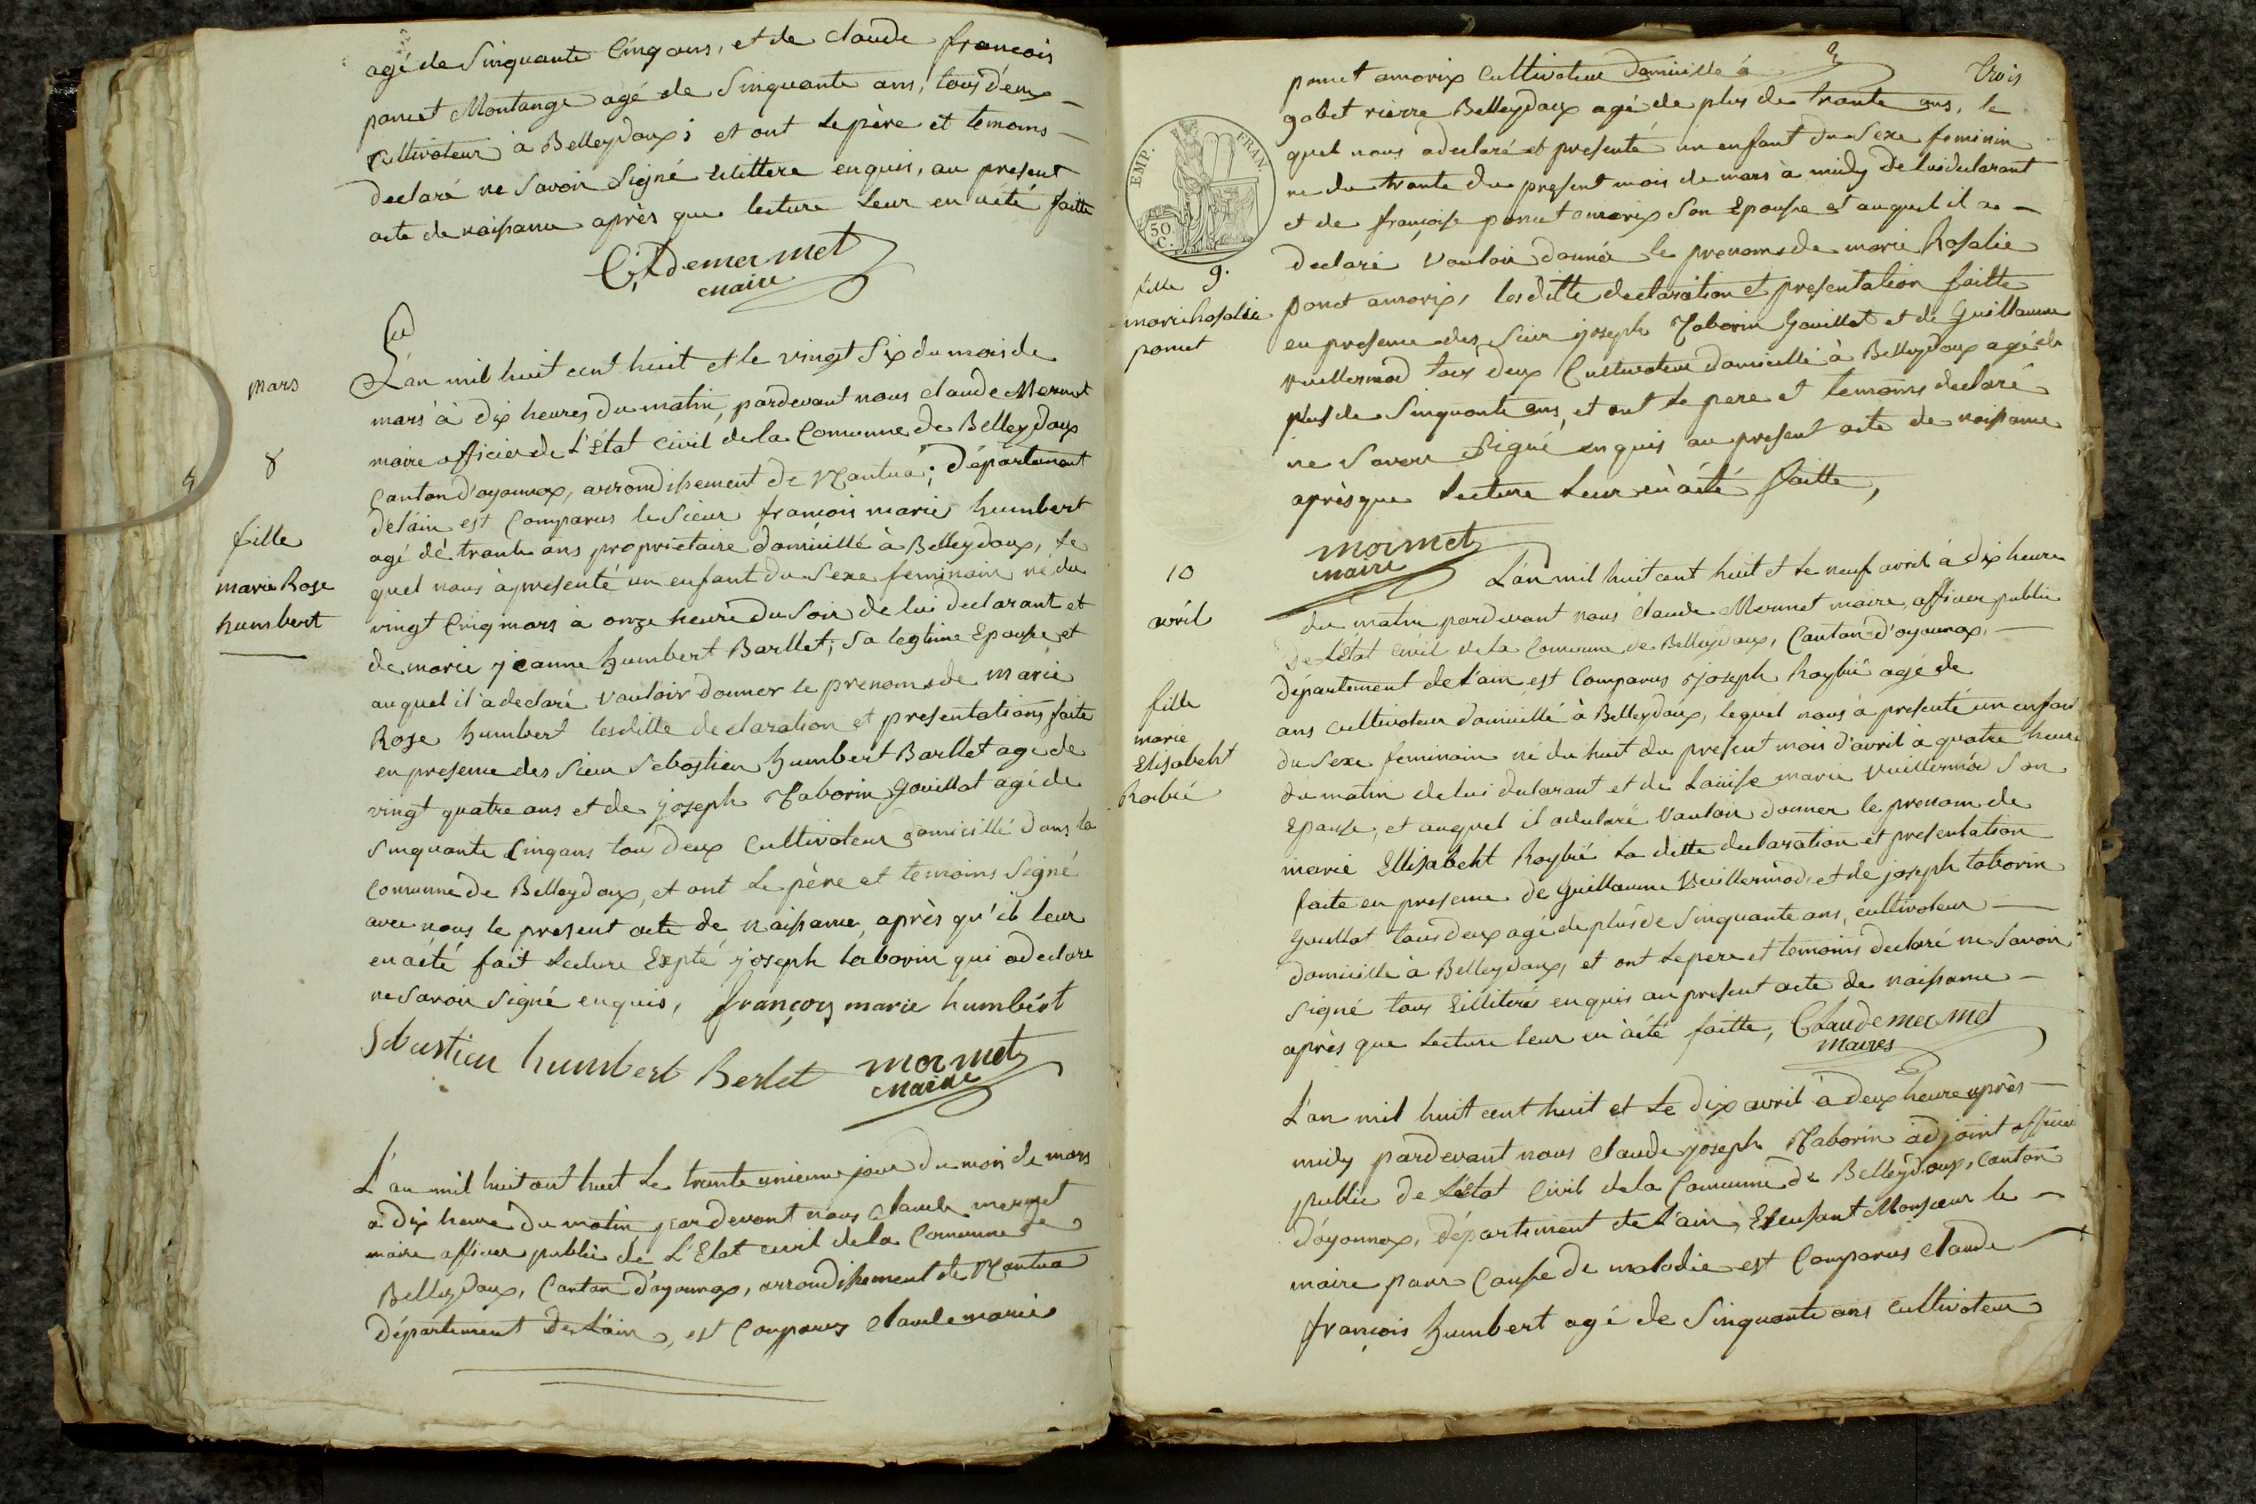 agé de Sinquante Cinq ans, et de claude françois
poncet Montange agé de Sinquante ans, tous deux
Cultivateur à Belleydoux; et ont le père et temoins
declaré ne Savoir Signé enquis, au present
acte de naissance après que lecture Leur en àété faitte
maire
mars
8
fille
marie Rose
humbert
L'an mil huit cent huit et le vingt Six du mois de
mars à dix heures du matin, pardevant nous claude Mermet
maire officier de L'État Civil de la Comunne de Belleydoux
Canton d'oyonnax, arrondissement de Nantua; département
delain est Comparus le Sieur francois marie humbert
agé de trante ans proprietaire domicillé à Belleydoux, le
quel nous à presenté un enfant du Sexe feminain né du
vingt Cinq mars à onze heure du Soir de lui declarant et
de marie jeanne humbert Barllet, Sa legtime Epouse et
auquel il à declaré vouloir donner le prenoms de marie
Rose humbert lesditte declaration et presentations faite
en presence des Sieur Sebastien humbert Barllet agé de
vingt quatre ans et de joseph Taborin Gouillat agé de
Sinquante Cinq ans tous deux Cultivateur domicillé dans la
Comunne de Belleydoux, et ont Le père et temoins Signé
avec nous le present acte de naissance, après qu'il leur
en àété fait Lecture Expté joseph taborin qui a declare
ne Savoir Signé enquis, françois marie humbért
Sebastien humbert Berlet mermet
maire
L'an mil huit cent huit Le trante unieme jour du mois de mars
à dix heure du matin pardevant nous claude mermet
maire officier public de L'Etat civil de la Comunne de
Belleydoux, Canton d'oyonnax, arrondissement de Nantua
département de L'ain, est Comparus claude marie
3
trois
EMP. FRAN.
50 C.
fille 9.
marie Rosalie
poncet
poncet amorix Cultivateur domicillé à
gobet rierre Belleydoux agé de plus de trante ans, le
quel nous adeclaré et presenté un enfant du Sexe feminin
ne du trante du present mois de mars à midy de lui declarant
et de françoise poncet amorix Son Epouse et auquel il a
declaré vouloir donnér le prenoms de marie Rosalie
poncet amorix, lesditte declaration et presentation faitte
en presence des Sieur joseph Taborin Gouillat et de Guillaume
vuillermod tous deux Cultivateur domicillé à Belleydoux agé de
plus de Sinquante ans, et ont Le pere et temoins declaré
ne Savoir Signé enquis au present acte de naissance
après que Lecture Leur en àété faitte,
mermet
maire
10
avril
fille
marie
Elisabeht
Roybié
L'an mil huit cent huit et Le neuf avril à dix heure
du matin pardevant nous claude Mermet maire, officier public
De L'état civil de la Comunne de Belleydoux, Canton d'oyonnax,
département de L'ain est Comparus joseph Roybié agé de
ans cultivateur domicillé à Belleydoux, lequel nous à presenté un enfant
du Sexe feminain né du huit du present mois d'avril à quatre heure
du matin de lui declarant et de Louise marie vuillermoz Son
Epouse, et auquel il adeclaré vouloir donner le prenom de
marie Ellisabeht Roybié La ditte declaration et presentation
faite en presence de Guillaume Vuillermod et de joseph taborin
Gouillat tous deux agé de plus de Sinquante ans, cultivateur
domicille à Belleydoux, et ont Le pere et temoins declaré ne Savoir
Signé tous enquis au present acte de naissance
après que Lecture leur en àété faitte, Claude mermet
maires
L'an mil huit cent huit et Le dix avril à deux heure après
midy pardevant nous claude joseph Taborin adjoint officier
public de L'état Civil de la Comunne de Belleydoux, Canton
d'oyonnax, département de L'ain, Monsieur le
maire pour Cause de maladie est Comparus claude
françois humbert agé de Sinquante ans cultivateur